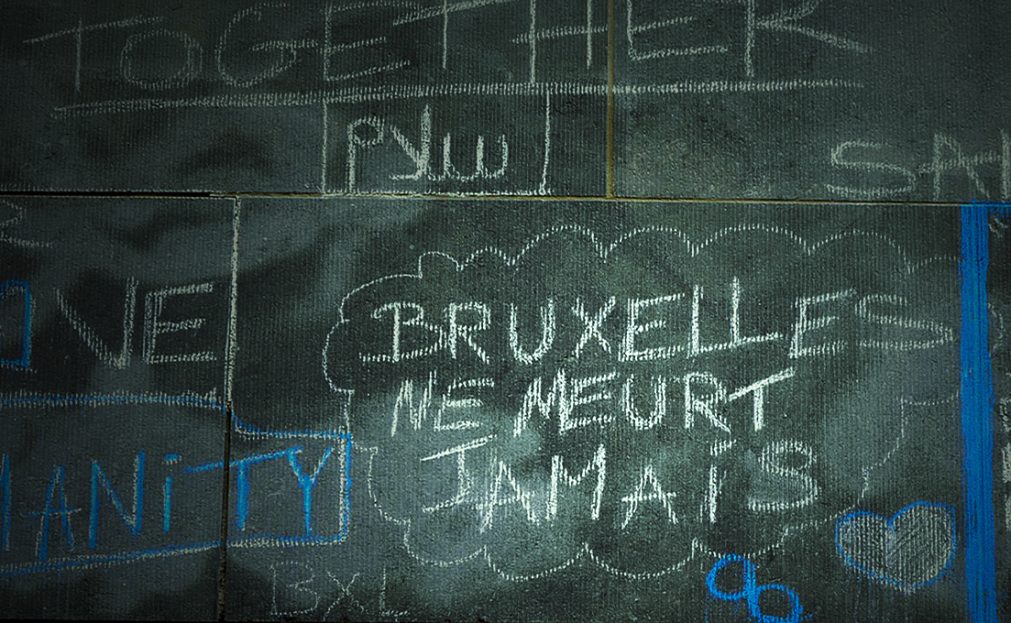 TOGETHER
PYW
BRUXELLES
NE MEURT
JAMAiS
MANiTY
BXL